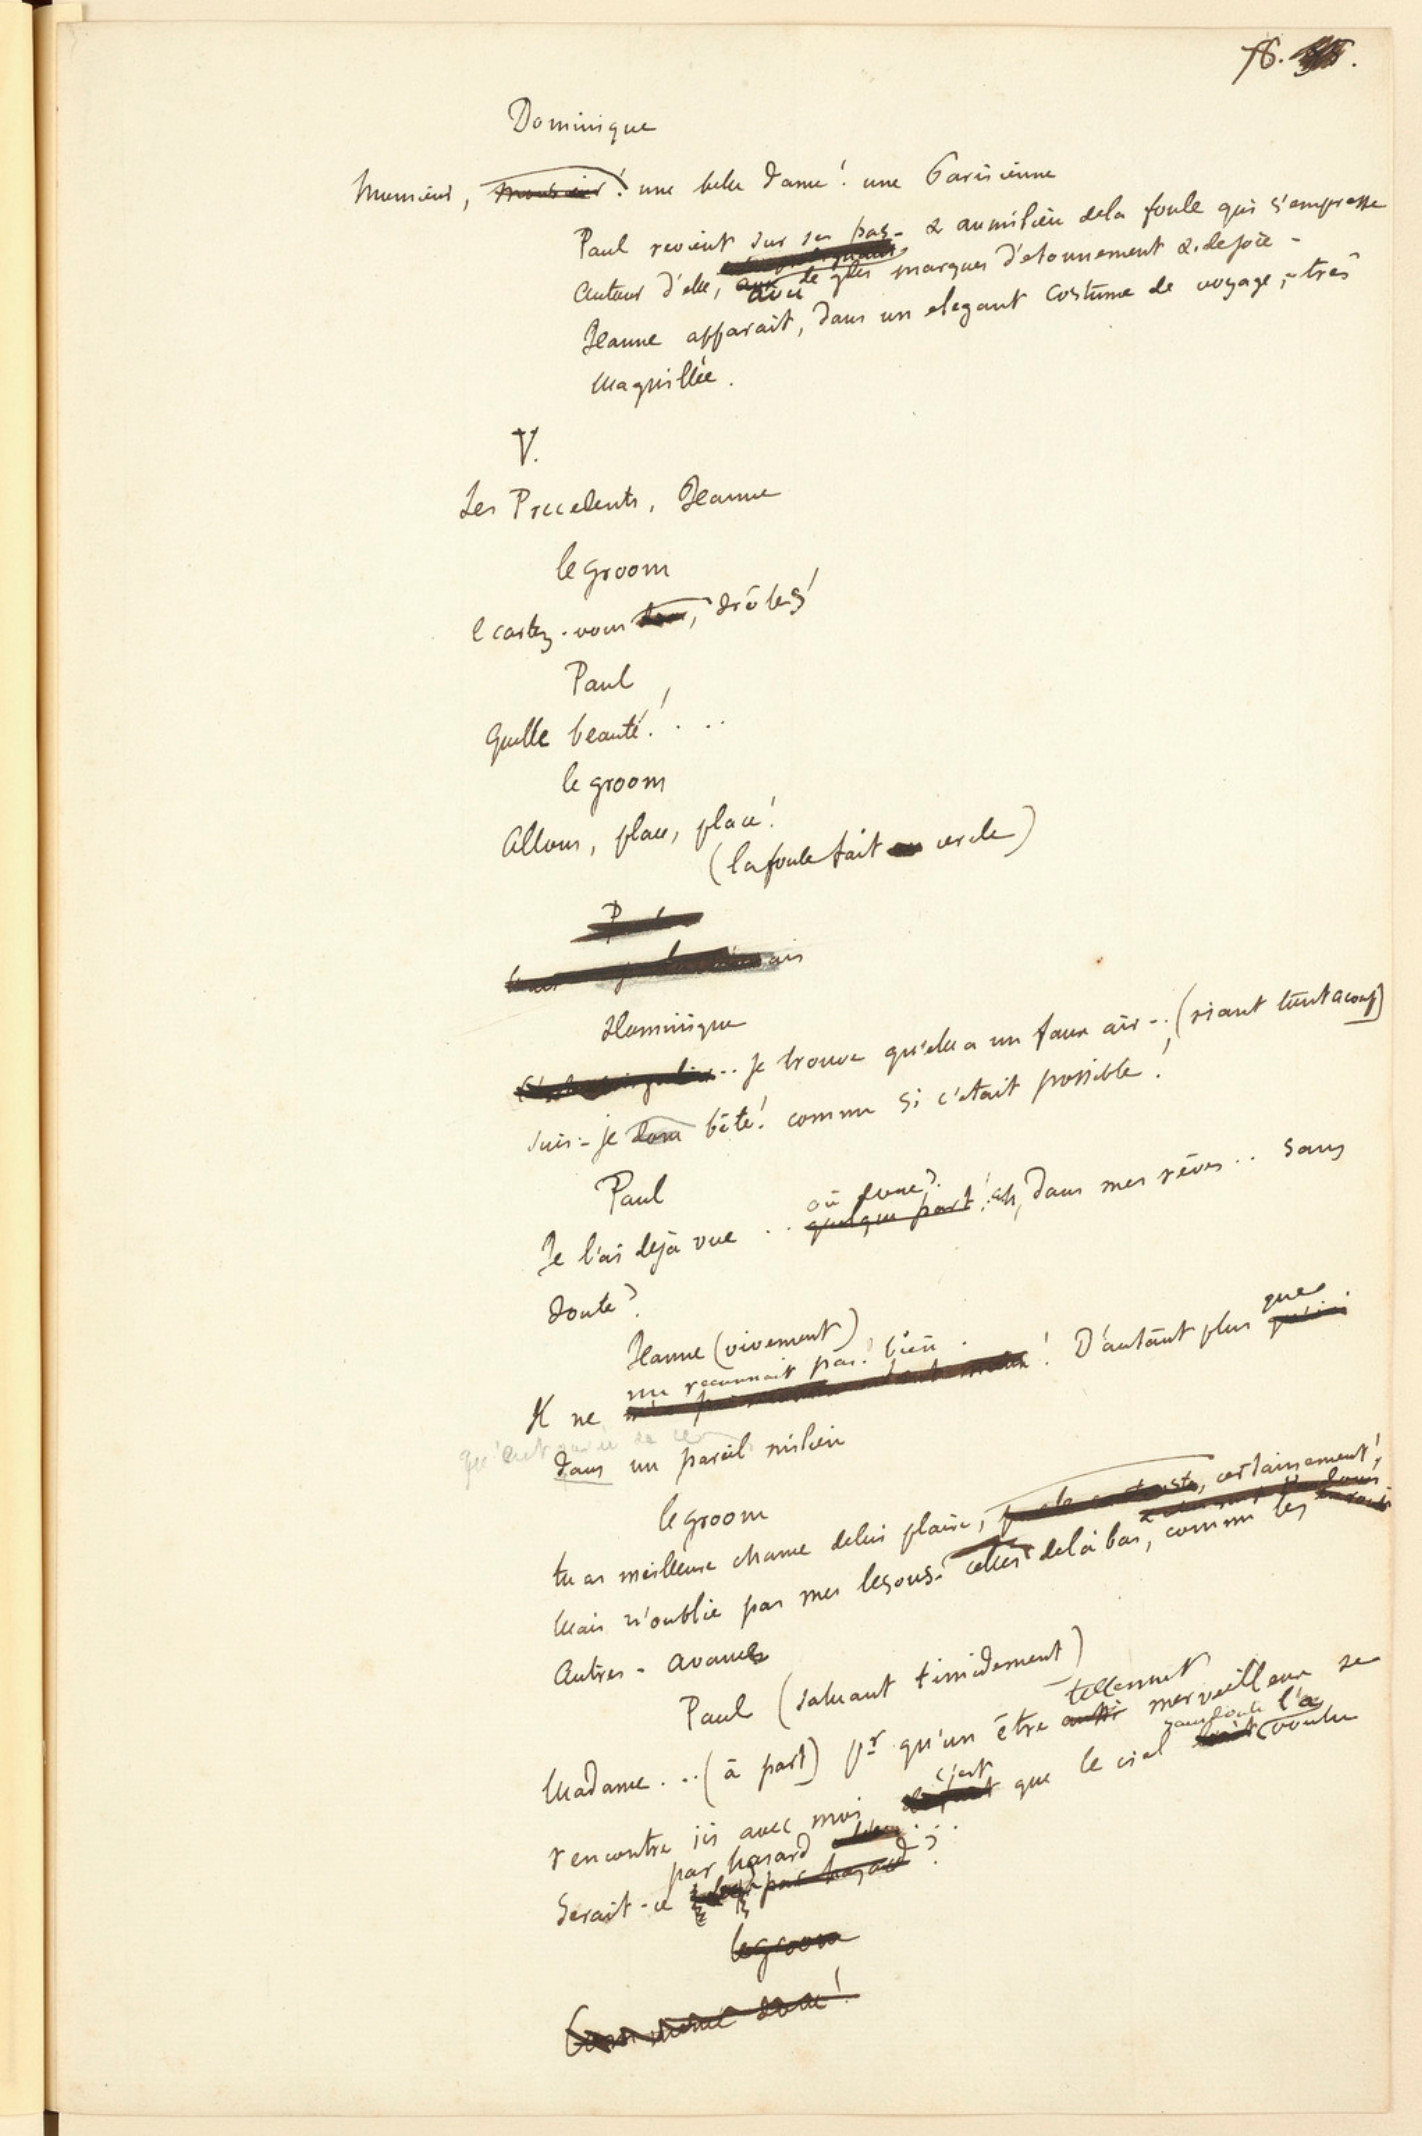 76.
Dominique
Monsieur, monsieur! une belle dame! une Parisienne
Paul revient sur ses pas - & au milieu de la foule qui s'empresse
autour d'elle, avec de gdes marques d'étonnement & de joie -
Jeanne apparaît, dans un elegant costume de voyage, - très
maquillée.
V.
Les Precedents, Jeanne
le groom
ecartez-vous donc, drôles!
Paul
Quelle beauté! ...
le groom
Allons, place, place!
(la foule fait un cercle)
Paul
ais
Dominique
.. je trouve qu'elle a un faux air .. (riant tout a coup)
suis-je donc bête! comme si c'était possible!
Paul
où donc?
Je l'ai dejà vue ... quelque part! eh, dans mes rêves .. sans
doute?
Jeanne (vivement)
me reconnait pas! bien.
que
Il ne ! D'autant plus qu'ici
dans un pareil milieu
le groom
tu as meilleure chance de lui plaire, certainement!
Mais n'oublie pas mes leçons. celles de là bas, comme les
autres - avance
Paul (saluant timidement)
tellement
Madame ... (à part) pr qu'un être aussi merveilleux se
c'est
sans doute l'a
rencontre ici avec moi, que le ciel voulu
par hasard
Serait-ce par hasard?
le groom
donc!